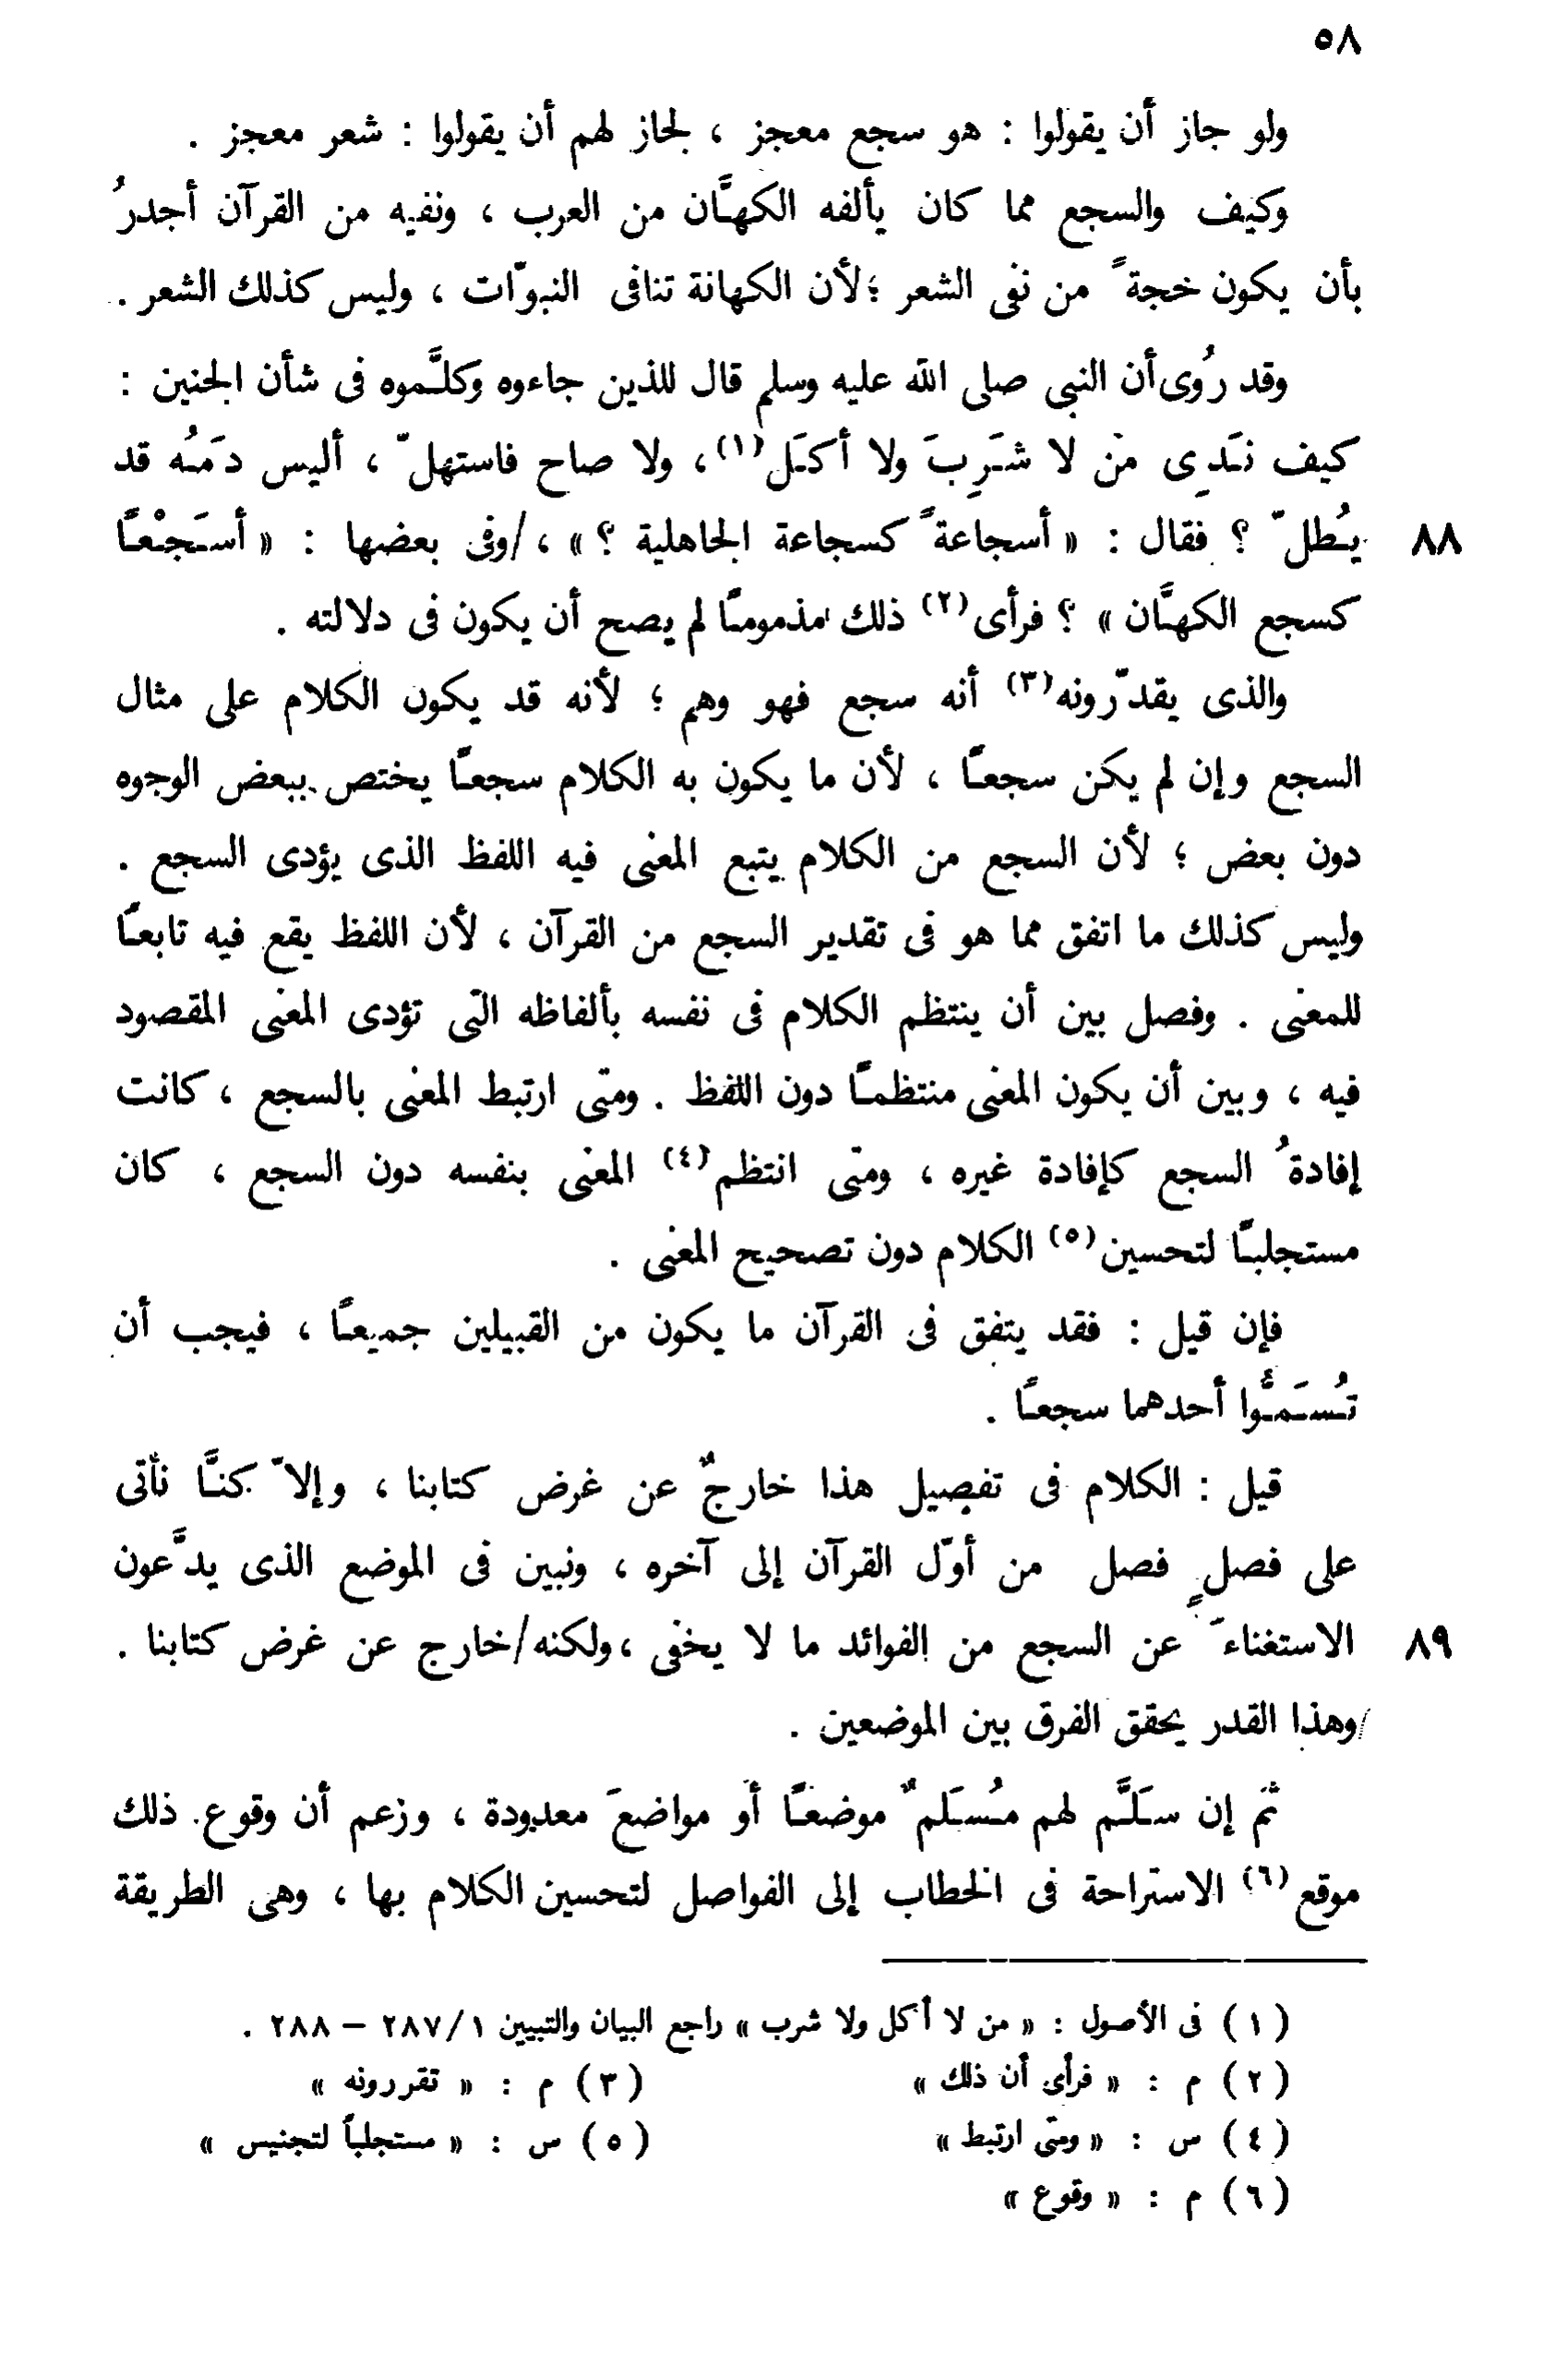 ٥٨
ولو جاز أن يقولوا : هو سجع معجز ، لجاز لهم أن يقولوا : شعر معجز .
وكيف والسجع مما كان يألفه الكهَّان من العرب ، ونفيه من القرآن أجدرُ
بأن يكون حجةً من نفى الشعر ؛ لأن الكهانة تنافى النبوّات ، وليس كذلك الشعر .
وقد رُوى أن النبى صلى الله عليه وسلم قال للذين جاءوه وكلَّموه فى شأن الجنين :
كيف نَدِى مَنْ لا شَرِبَ ولا أكَل(١) ، ولا صاح فاستهلّ ، أليس دَمُه قد
٨٨ يُطلّ ؟ فقال : « أسجاعةً كسجاعة الجاهلية ؟ » ، /وفى بعضها : « أسَجْعًا
كسجع الكهَّان » ؟ فرأى(٢) ذلك مذمومًا لم يصح أن يكون فى دلالته .
والذى يقدّرونه(٣) أنه سجع فهو وهم ؛ لأنه قد يكون الكلام على مثال
السجع وإن لم يكن سجعًا ، لأن ما يكون به الكلام سجعًا يختص ببعض الوجوه
دون بعض ؛ لأن السجع من الكلام يتبع المعنى فيه اللفظ الذى يؤدى السجع .
وليس كذلك ما اتفق مما هو فى تقدير السجع من القرآن ، لأن اللفظ يقع فيه تابعًا
للمعنى . وفصل بين أن ينتظم الكلام فى نفسه بألفاظه التى تؤدى المعنى المقصود
فيه ، وبين أن يكون المعنى منتظمًا دون اللفظ . ومتى ارتبط المعنى بالسجع ، كانت
إفادةُ السجع كإفادة غيره ، ومتى انتظم(٤) المعنى بنفسه دون السجع ، كان
مستجلبًا لتحسين(٥) الكلام دون تصحيح المعنى .
فإن قيل : فقد يتفق فى القرآن ما يكون من القبيلين جميعًا ، فيجب أن
تُسَمُّوا أحدهما سجعًا .
قيل : الكلام فى تفصيل هذا خارجٌ عن غرض كتابنا ، وإلاّ كنَّا نأتى
على فصلٍ فصل من أوّل القرآن إلى آخره ، ونبين فى الموضع الذى يدَّعون
٨٩ الاستغناءَ عن السجع من الفوائد ما لا يخفى ، ولكنه/خارج عن غرض كتابنا .
/وهذا القدر يحقق الفرق بين الموضعين .
ثم إن سَلَّم لهم مُسَلمٌ موضعًا أو مواضعَ معدودة ، وزعم أن وقوع ذلك
موقع(٦) الاستراحة فى الخطاب إلى الفواصل لتحسين الكلام بها ، وهى الطريقة
(١) فى الأصول : « من لا أكل ولا شرب » راجع البيان والتبيين ٢٨٧/١ – ٢٨٨ .
(٢) م : « فرأى أن ذلك » (٣) م : « تقررونه »
(٤) س : « ومتى ارتبط » (٥) س : « مستجلباً لتجنيس »
(٦) م : « وقوع »